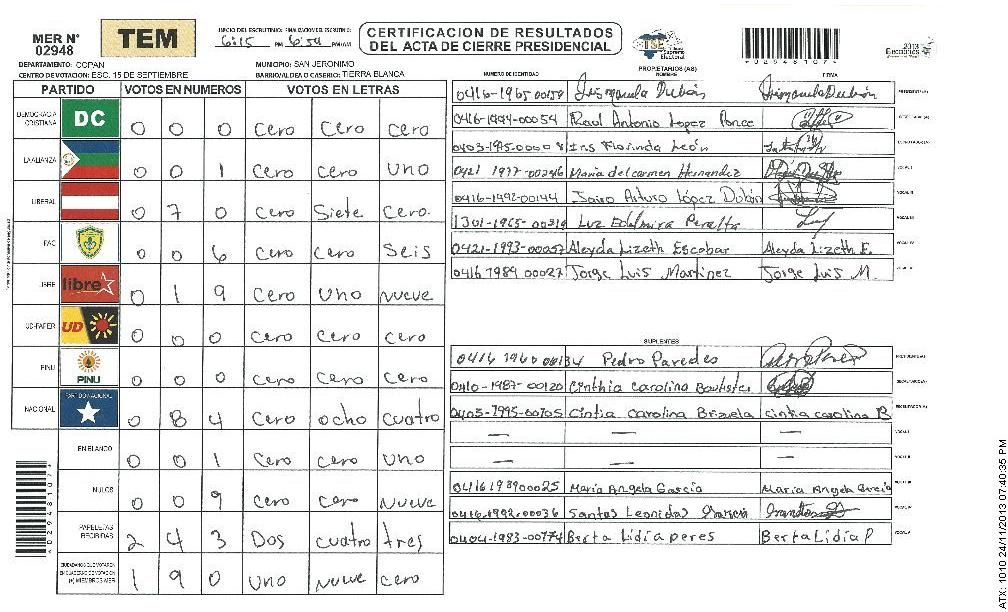 MER N° 02948
TEM
INICIO DEL ESCRUTINIO: 6:15 PM FINALIZACION DEL ESCRUTINIO: 6:59 PM/AM
CERTIFICACION DE RESULTADOS
DEL ACTA DE CIERRE PRESIDENCIAL
TSE Tribunal Supremo Electoral
2013 Elecciones
*02948107*
DEPARTAMENTO: COPAN MUNICIPIO: SAN JERONIMO
CENTRO DE VOTACION: ESC. 15 DE SEPTIEMBRE BARRIO/ALDEA O CASERIO: TIERRA BLANCA
PARTIDO VOTOS EN NUMEROS VOTOS EN LETRAS
DEMOCRACIA CRISTIANA DC 0 0 0 Cero Cero Cero
LA ALIANZA 0 0 1 Cero Cero uno
LIBERAL 0 7 0 Cero Siete Cero.
PAC 0 0 6 Cero Cero Seis
LIBRE libre 0 1 9 Cero uno nueve
UD-FAPER UD 0 0 0 Cero Cero Cero
PINU PINU 0 0 0 Cero Cero Cero
NACIONAL PARTIDO NACIONAL 0 8 4 Cero ocho cuatro
EN BLANCO 0 0 1 Cero Cero uno
NULOS 0 0 9 Cero Cero Nueve
PAPELETAS RECIBIDAS 2 4 3 Dos cuatro tres
CIUDADANOS QUE VOTARON EN CUADERNO DE VOTACION (+) MIEMBROS MER 1 9 0 uno nueve cero
NUMERO DE IDENTIDAD PROPIETARIOS (AS) NOMBRE FIRMA
0416-1965-00159 Dubón PRESIDENTE(A)
0416-1994-00054 Raul Antonio Lopez Ponce SECRETARIO(A)
Iris Florinda León ESCRUTADOR(A)
0421-1977-00246 Maria del carmen Hernandez VOCAL I
0416-1992-00144 Jairo Arturo López Dubón VOCAL II
1301-1965-00319 Luz Edelmira Peralta VOCAL III
0421-1993-00057 Aleyda Lizeth Escobar Aleyda Lizeth E. VOCAL IV
0416 1989 00027 Jorge Luis Martinez Jorge Luis M. VOCAL V
SUPLENTES
0416 1960 00134 Pedro Paredes PRESIDENTE(A)
0410-1987-00120 Cinthia Carolina Bautista SECRETARIO(A)
0405-1995-00705 Cintia Carolina Brizuela Cintia carolina B ESCRUTADOR(A)
— — — VOCAL I
— — — VOCAL II
0416198900025 Maria Angela Garcia Maria Angela Garcia VOCAL III
0416.1992.00036 Santos Leonidas Garcia VOCAL IV
0404-1983-00774 Berta Lidia peres Berta Lidia P VOCAL V
*02948107*
ATX: 1010 24/11/2013 07:40:35 PM